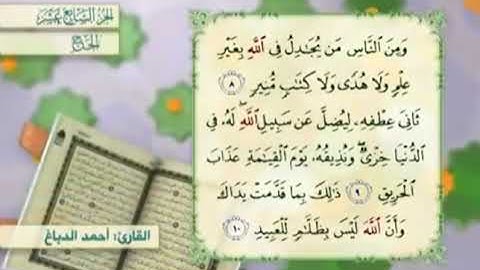 الجزء السابع عشر
الحج
وَمِنَ النَّاسِ مَن يُجَٰدِلُ فِى اللَّهِ بِغَيْرِ
عِلْمٍ وَلَا هُدًى وَلَا كِتَٰبٍ مُّنِيرٍ ٨
ثَانِىَ عِطْفِهِۦ لِيُضِلَّ عَن سَبِيلِ اللَّهِ ۖ لَهُۥ فِى
الدُّنْيَا خِزْىٌ ۖ وَنُذِيقُهُۥ يَوْمَ الْقِيَٰمَةِ عَذَابَ
الْحَرِيقِ ٩ ذَٰلِكَ بِمَا قَدَّمَتْ يَدَاكَ
وَأَنَّ اللَّهَ لَيْسَ بِظَلَّٰمٍ لِّلْعَبِيدِ ١٠
القارئ: أحمد الدباغ